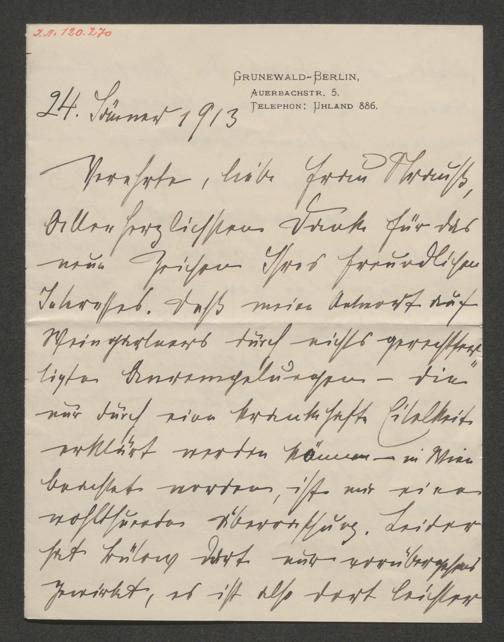 I.N. 120.270
GRUNEWALD-BERLIN,
AUERBACHSTR. 5.
TELEPHON: UHLAND 886.
24. Jänner 1913
Verehrte, liebe Frau Strauß,
Allerherzlichsten Dank für das
neue Zeichen Ihres freundlichen
Interesses. Daß meine Antwort auf
Weingartners durch nichts gerechtfer-
tigte Anrempelungen – die
nur durch eine krankhafte Eitelkeit
erklärt werden können – in Wien
beachtet worden, ist mir eine
wohltuende Überraschung. Leider
hat Bülow dort nur vorübergehend
gewirkt, es ist also dort leichter